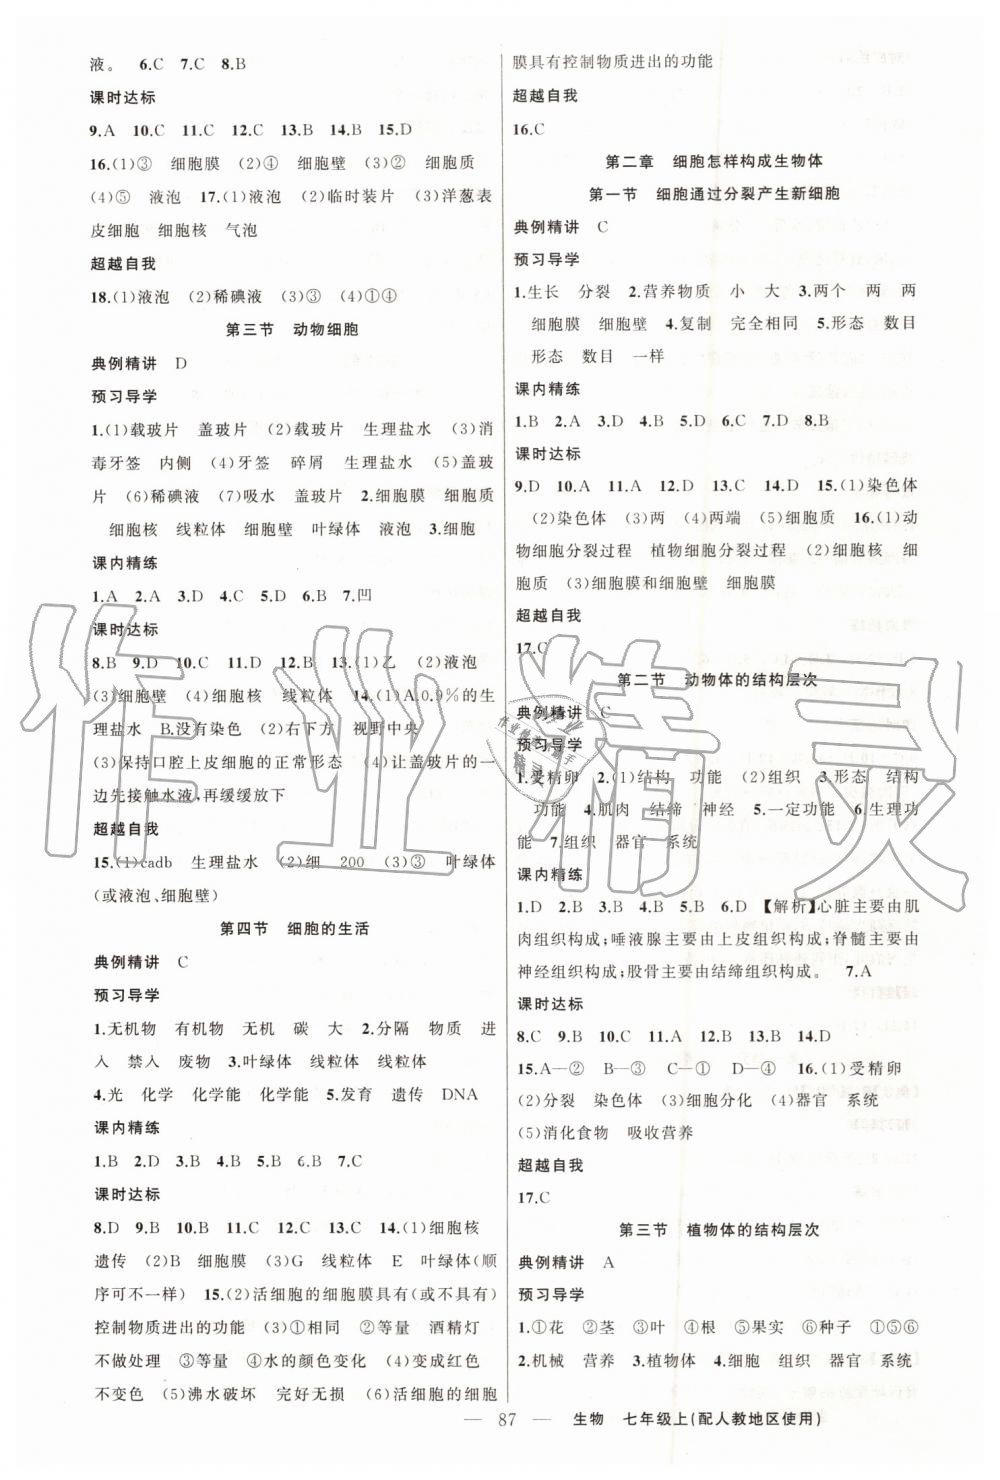 液。 6.C 7.C 8.B
课时达标
9.A 10.C 11.C 12.C 13.B 14.B 15.D
16.(1)③ 细胞膜 (2)④ 细胞壁 (3)② 细胞质
(4)⑤ 液泡 17.(1)液泡 (2)临时装片 (3)洋葱表
皮细胞 细胞核 气泡
超越自我
18.(1)液泡 (2)稀碘液 (3)③ (4)①④
第三节 动物细胞
典例精讲 D
预习导学
1.(1)载玻片 盖玻片 (2)载玻片 生理盐水 (3)消
毒牙签 内侧 (4)牙签 碎屑 生理盐水 (5)盖玻
片 (6)稀碘液 (7)吸水 盖玻片 2.细胞膜 细胞质
细胞核 线粒体 细胞壁 叶绿体 液泡 3.细胞
课内精练
1.A 2.A 3.D 4.C 5.D 6.B 7.凹
课时达标
8.B 9.D 10.C 11.D 12.B 13.(1)乙 (2)液泡
(3)细胞壁 (4)细胞核 线粒体 14.(1)A.0.9%的生
理盐水 B.没有染色 (2)右下方 视野中央
(3)保持口腔上皮细胞的正常形态 (4)让盖玻片的一
边先接触水液,再缓缓放下
超越自我
15.(1)cadb 生理盐水 (2)细 200 (3)③ 叶绿体
(或液泡、细胞壁)
第四节 细胞的生活
典例精讲 C
预习导学
1.无机物 有机物 无机 碳 大 2.分隔 物质 进
入 禁入 废物 3.叶绿体 线粒体 线粒体
4.光 化学 化学能 化学能 5.发育 遗传 DNA
课内精练
1.B 2.D 3.B 4.B 5.B 6.B 7.C
课时达标
8.D 9.B 10.B 11.C 12.C 13.C 14.(1)细胞核
遗传 (2)B 细胞膜 (3)G 线粒体 E 叶绿体(顺
序可不一样) 15.(2)活细胞的细胞膜具有(或不具有)
控制物质进出的功能 (3)①相同 ②等量 酒精灯
不做处理 ③等量 ④水的颜色变化 (4)变成红色
不变色 (5)沸水破坏 完好无损 (6)活细胞的细胞
膜具有控制物质进出的功能
超越自我
16.C
第二章 细胞怎样构成生物体
第一节 细胞通过分裂产生新细胞
典例精讲 C
预习导学
1.生长 分裂 2.营养物质 小 大 3.两个 两 两
细胞膜 细胞壁 4.复制 完全相同 5.形态 数目
形态 数目 一样
课内精练
1.B 2.A 3.D 4.B 5.D 6.C 7.D 8.B
课时达标
9.D 10.A 11.A 12.D 13.C 14.D 15.(1)染色体
(2)染色体 (3)两 (4)两端 (5)细胞质 16.(1)动
物细胞分裂过程 植物细胞分裂过程 (2)细胞核 细
胞质 (3)细胞膜和细胞壁 细胞膜
超越自我
17.C
第二节 动物体的结构层次
典例精讲 C
预习导学
1.受精卵 2.(1)结构 功能 (2)组织 3.形态 结构
功能 4.肌肉 结缔 神经 5.一定功能 6.生理功
能 7.组织 器官 系统
课内精练
1.D 2.D 3.B 4.D 5.B 6.D 【解析】心脏主要由肌
肉组织构成;唾液腺主要由上皮组织构成;脊髓主要由
神经组织构成;股骨主要由结缔组织构成。 7.A
课时达标
8.C 9.B 10.C 11.A 12.B 13.B 14.D
15.A—② B—③ C—① D—④ 16.(1)受精卵
(2)分裂 染色体 (3)细胞分化 (4)器官 系统
(5)消化食物 吸收营养
超越自我
17.C
第三节 植物体的结构层次
典例精讲 A
预习导学
1.①花 ②茎 ③叶 ④根 ⑤果实 ⑥种子 ①⑤⑥
2.机械 营养 3.植物体 4.细胞 组织 器官 系统
— 87 — 生物 七年级上(配人教地区使用)
作业精灵